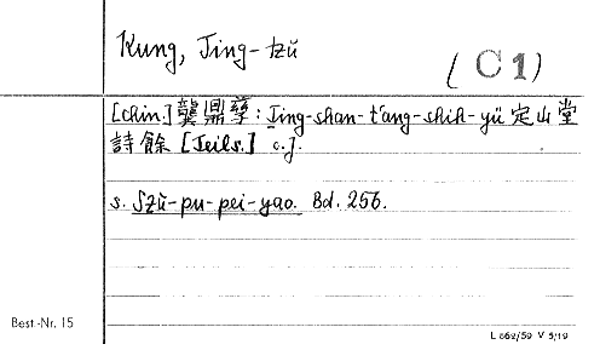 Kung, Ting-tzŭ
(C1)
[chin.] 龔鼎孳: Ting-shan-t'ang-shih-yü 定山堂
詩餘 [Teils.] c.J.
s. Szŭ-pu-pei-yao. Bd. 256.
Best.-Nr. 15
L 562/59 V 5/19